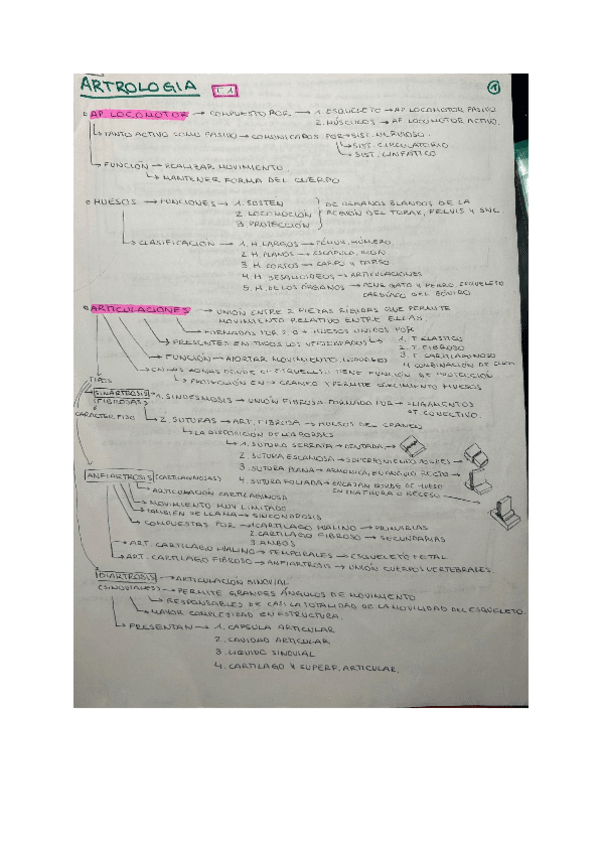 ARTROLOGIA T.1 1
AP. LOCOMOTOR → COMPUESTO POR → 1. ESQUELETO → AP LOCOMOTOR PASIVO.
2. MÚSCULOS → AP LOCOMOTOR ACTIVO.
TANTO ACTIVO COMO PASIVO → COMUNICADOS POR → SIST. NERVIOSO.
SIST. CIRCULATORIO
SIST. LINFÁTICO
FUNCIÓN → REALIZAR MOVIMIENTO
MANTENER FORMA DEL CUERPO
HUESOS → FUNCIONES → 1. SOSTÉN
2. LOCOMOCIÓN
3. PROTECCIÓN
DE ÓRGANOS BLANDOS DE LA
REGIÓN DEL TORAX, PELVIS Y SNC
CLASIFICACIÓN → 1. H. LARGOS → FÉMUR, HÚMERO.
2. H. PLANOS → ESCÁPULA,
3. H. CORTOS → CARPO Y TARSO
4. H. SESAMOIDEOS → ARTICULACIONES
5. H. DE LOS ÓRGANOS → PENE GATO Y PERRO, ESQUELETO
CARDIACO DEL BÓVIDO
ARTICULACIONES → UNIÓN ENTRE 2 PIEZAS RÍGIDAS QUE PERMITE
MOVIMIENTO RELATIVO ENTRE ELLAS.
FORMADAS POR 2 O + HUESOS UNIDOS POR
1. T ELÁSTICO
2. T. FIBROSO
3. T CARTILAGINOSO
4. COMBINACIÓN DE
PRESENTES EN TODOS LOS VERTEBRADOS
FUNCIÓN → APORTAR MOVIMIENTO
EN LAS ZONAS DONDE TIENE FUNCIÓN DE PROTECCIÓN
PROTECCIÓN EN → CRÁNEO Y PERMITE CRECIMIENTO HUESOS.
TIPOS
SINARTROSIS (FIBROSAS) → 1. SINDESMOSIS → UNIÓN FIBROSA FORMADA POR → LIGAMENTOS
T. CONECTIVO.
CARÁCTER FIJO
2. SUTURAS → ART. FIBROSA → HUESOS DEL CRÁNEO
LA DISPOSICIÓN DE LOS BORDES
1. SUTURA SERRATA → DENTADA
2. SUTURA ESCAMOSA →
3. SUTURA PLANA → ARMÓNICA, EN ÁNGULO RECTO
4. SUTURA FOLIADA → ENCAJAN BORDE DE HUESO
EN FISURA O RECESO
ANFIARTROSIS (CARTILAGINOSAS)
ARTICULACIÓN CARTILAGINOSA
MOVIMIENTO MUY LIMITADO
TAMBIÉN SE LLAMA → SINCONDROSIS
COMPUESTAS POR → 1. CARTÍLAGO HIALINO → PRIMARIAS
2. CARTÍLAGO FIBROSO → SECUNDARIAS
3. AMBOS
ART. CARTÍLAGO HIALINO → TEMPORALES → ESQUELETO FETAL
ART. CARTÍLAGO FIBROSO → ANFIARTROSIS → UNIÓN CUERPOS VERTEBRALES.
DIARTROSIS → ARTICULACIÓN SINOVIAL
(SINOVIALES) → PERMITE GRANDES ÁNGULOS DE MOVIMIENTO
RESPONSABLES DE CASI LA TOTALIDAD DE LA MOVILIDAD DEL ESQUELETO
MAYOR COMPLEJIDAD EN ESTRUCTURA.
PRESENTAN → 1. CAPSULA ARTICULAR
2. CAVIDAD ARTICULAR
3. LÍQUIDO SINOVIAL
4. CARTÍLAGO Y SUPERF. ARTICULAR.